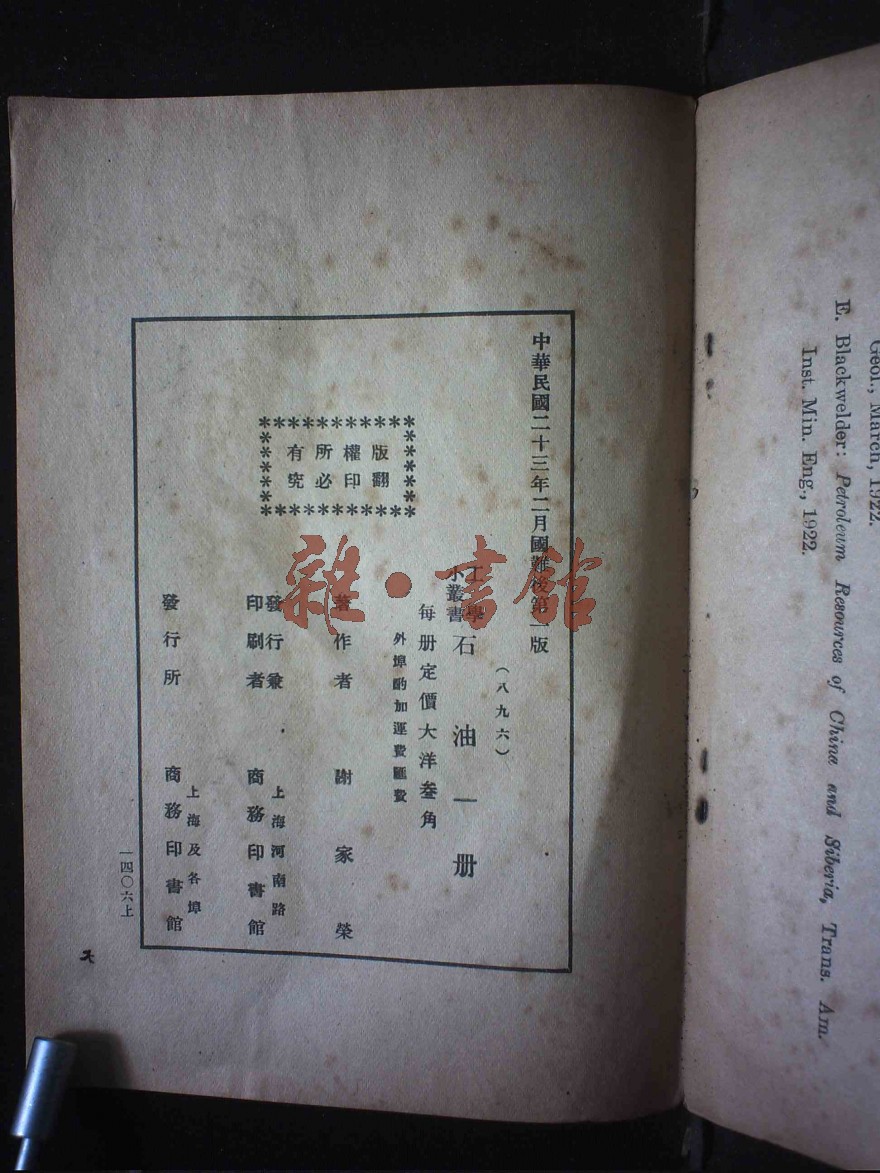 中華民國二十三年二月國難後第一版
(八九六)
工學
小叢書
石油一册
每册定價大洋叁角
外埠酌加運費匯費
版權所有
翻印必究
著作者 謝家榮
發行兼
印刷者
上海河南路
商務印書館
發行所
上海及各埠
商務印書館
一四〇六上
Geol., March, 1922.
E. Blackwelder: Petroleum Resources of China and Siberia, Trans. Am.
Inst. Min. Eng., 1922.
雜·書館